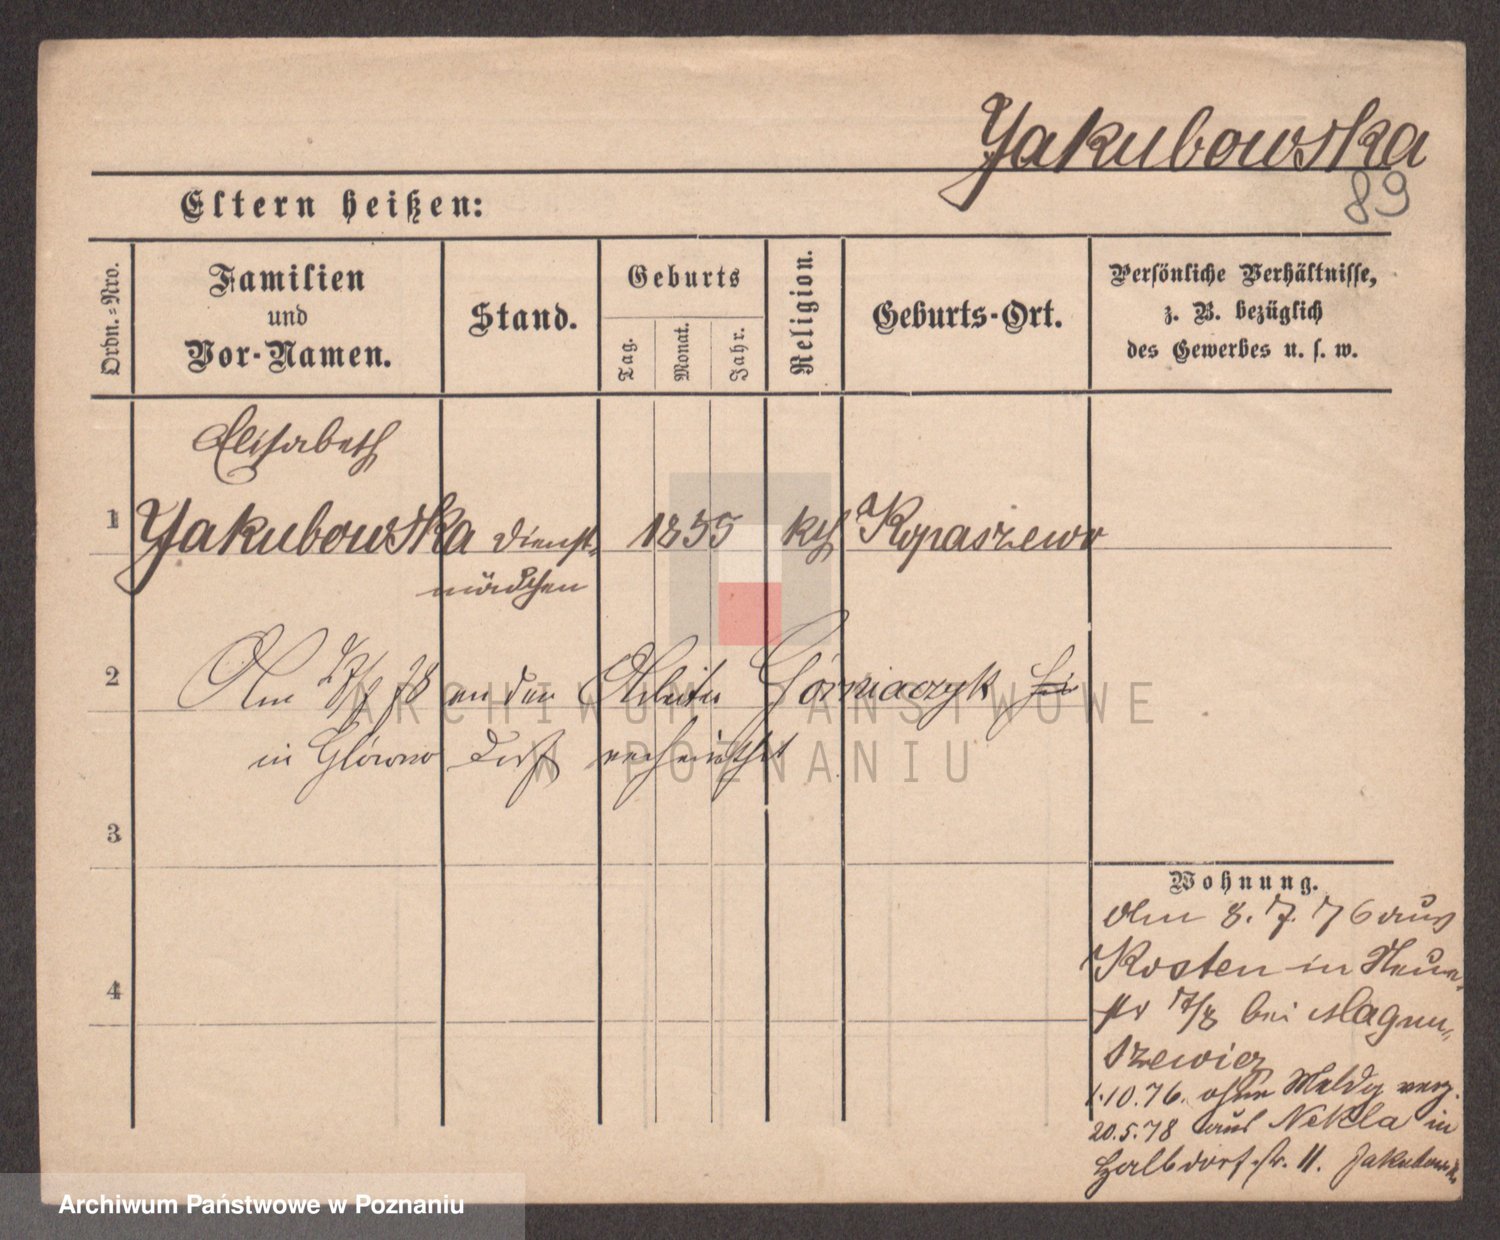 Yakubowska
89
Eltern heißen:
Ordn.-Nro.
Familien
und
Vor-Namen.
Stand.
Geburts
Tag.
Monat.
Jahr.
Religion.
Geburts-Ort.
Persönliche Verhältnisse,
z. B. bezüglich
des Gewerbes u. s. w.
Elisabeth
1 Yakubowska Dienst- 1855 kth Kopaszewo
mädchen
2 Am 78 an den Arbeiter Górniaczyk
in Główno Dorf verheirathet
3
4
Wohnung.
Am 8.7.76 aus
Kosten in Neue-
str 7/8 bei Magnu-
szewicz
1.10.76. ohne Meldg verz.
20.5.78 aus Nekla in
Halbdorfstr. 11. Jakubowska
ARCHIWUM PAŃSTWOWE
W POZNANIU
Archiwum Państwowe w Poznaniu